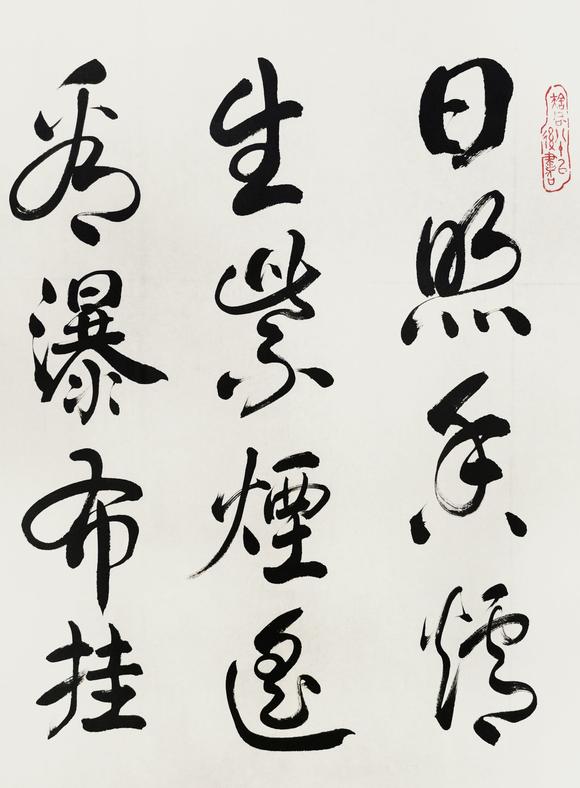 日照香爐
生紫煙遙
看瀑布挂